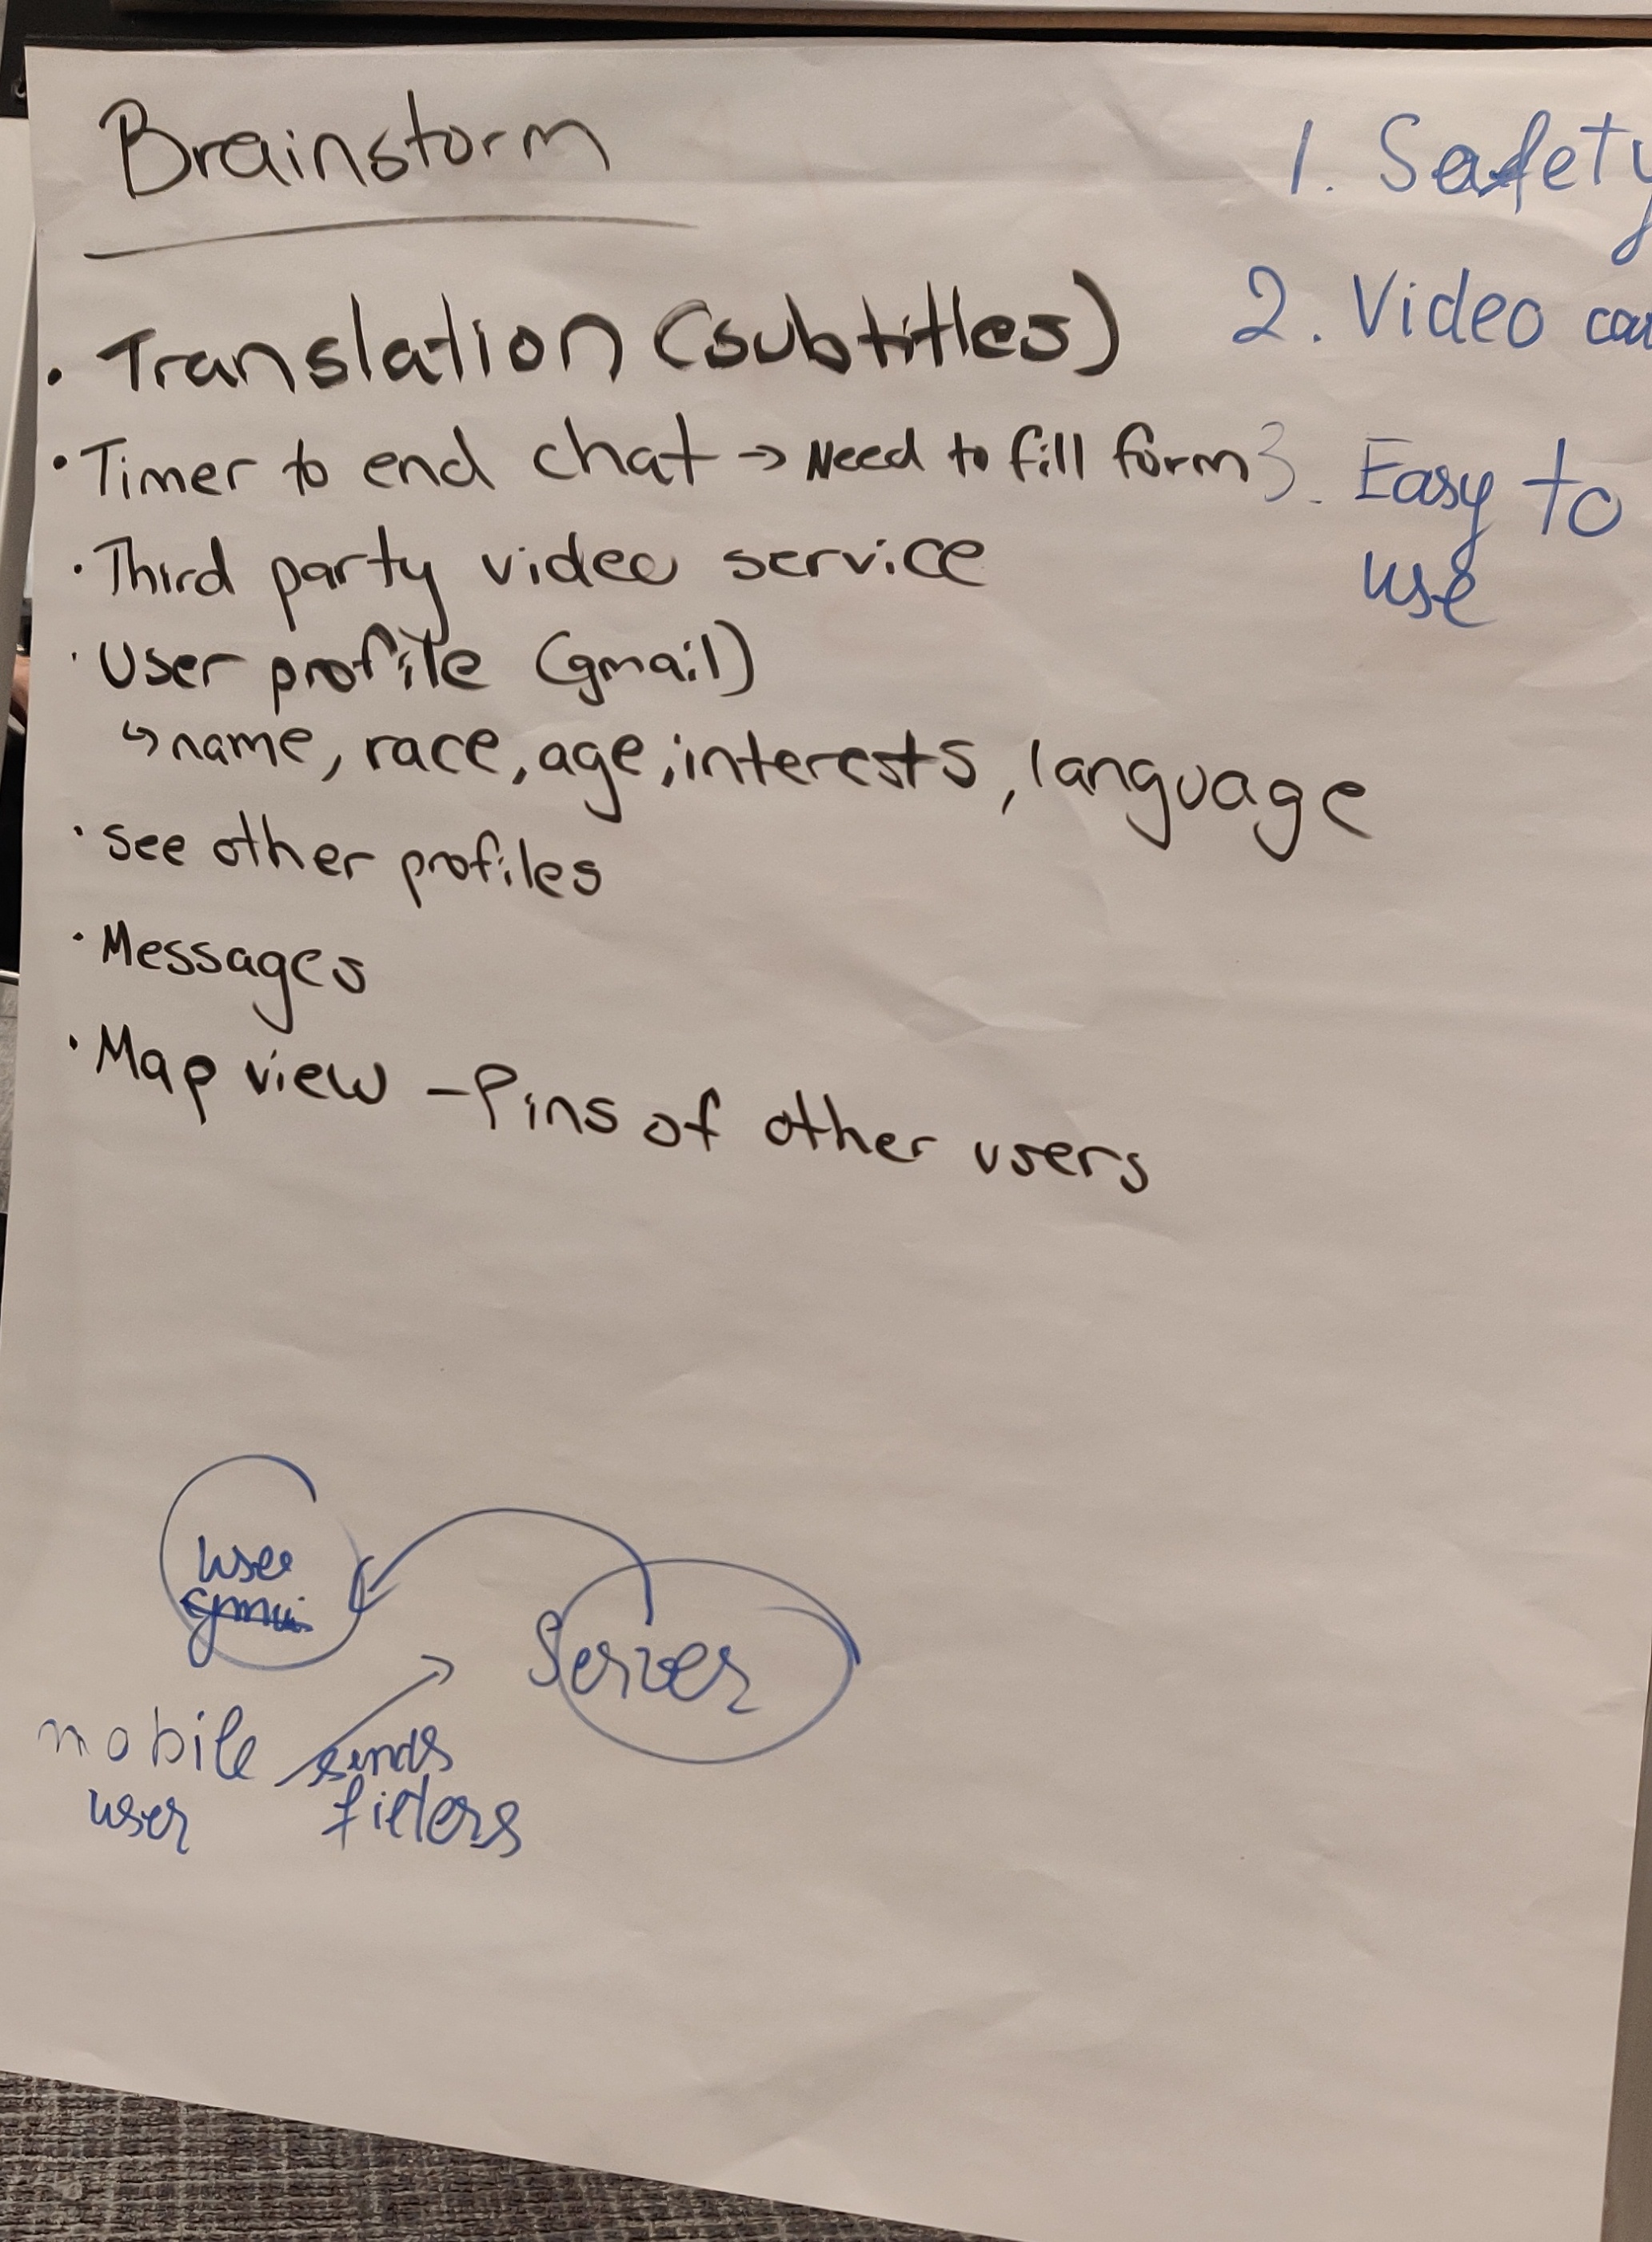 Brainstorm
• Translation (subtitles)
• Timer to end chat → Need to fill form
• Third party video service
• User profile (gmail)
↳ name, race, age, interests, language
• see other profiles
• Messages
• Map view – Pins of other users
1. Safety
2. Video
3. Easy to
use
user
Server
mobile
user
sends
filters